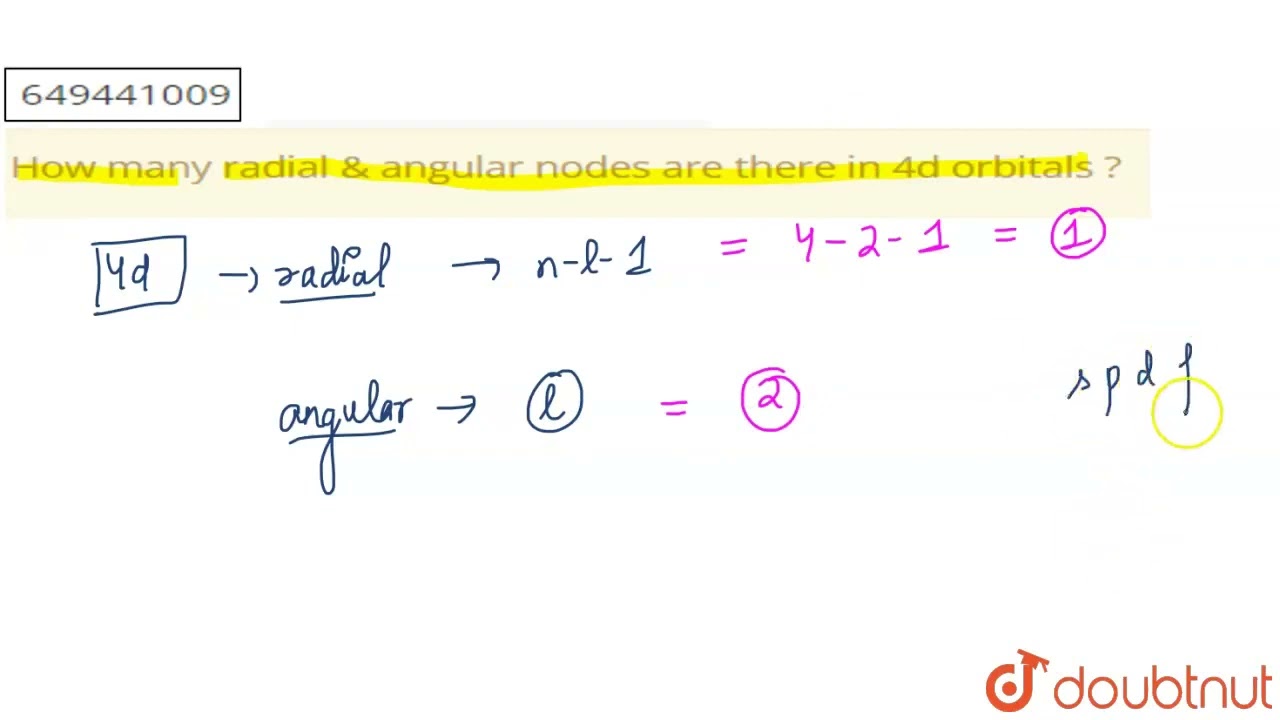 649441009
How many radial & angular nodes are there in 4d orbitals ?
4d → radial → n-l-1 = 4-2-1 = 1
angular → l = 2
s p d f
doubtnut